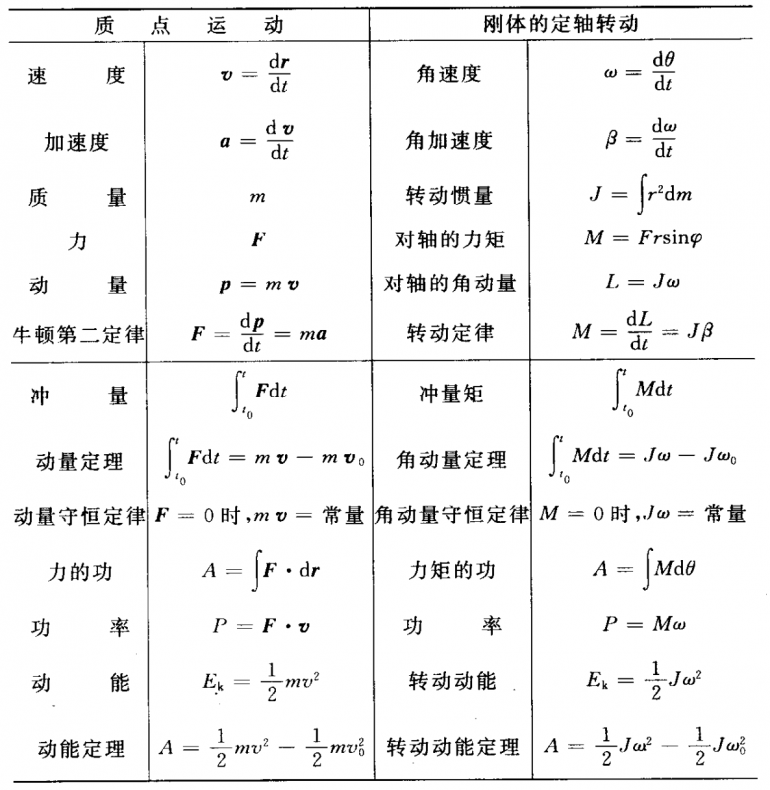 质 点 运 动 刚体的定轴转动
速 度 v = dr/dt 角速度 ω = dθ/dt
加速度 a = dv/dt 角加速度 β = dω/dt
质 量 m 转动惯量 J = ∫r²dm
力 F 对轴的力矩 M = Frsinφ
动 量 p = mv 对轴的角动量 L = Jω
牛顿第二定律 F = dp/dt = ma 转动定律 M = dL/dt = Jβ
冲 量 ∫_{t₀}^{t} Fdt 冲量矩 ∫_{t₀}^{t} Mdt
动量定理 ∫_{t₀}^{t} Fdt = mv − mv₀ 角动量定理 ∫_{t₀}^{t} Mdt = Jω − Jω₀
动量守恒定律 F = 0 时,mv = 常量 角动量守恒定律 M = 0 时,Jω = 常量
力的功 A = ∫F·dr 力矩的功 A = ∫Mdθ
功 率 P = F·v 功 率 P = Mω
动 能 Eₖ = 1/2 mv² 转动动能 Eₖ = 1/2 Jω²
动能定理 A = 1/2 mv² − 1/2 mv₀² 转动动能定理 A = 1/2 Jω² − 1/2 Jω₀²